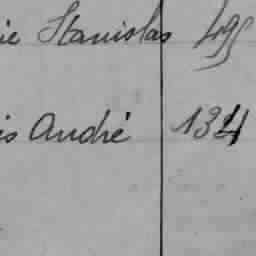 ie Stanislas 495
is André 134